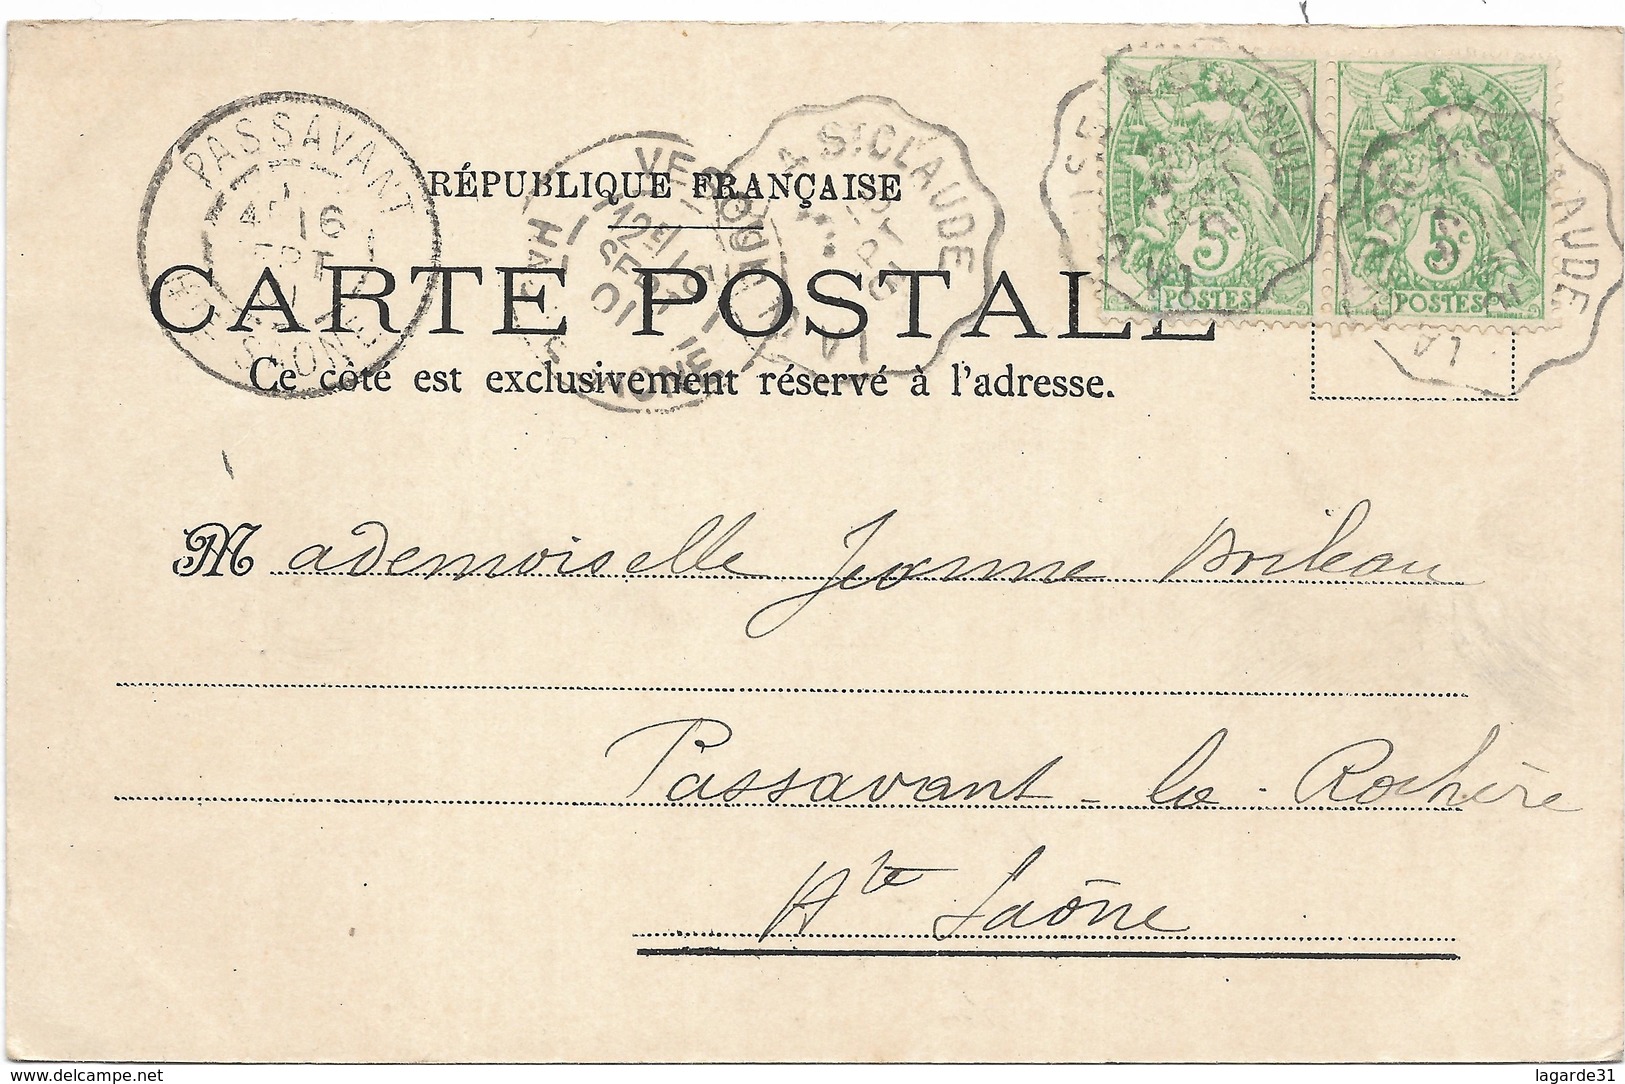 RÉPUBLIQUE FRANÇAISE
CARTE POSTALE
Ce côté est exclusivement réservé à l'adresse.
PASSAVANT
16
SAÔNE
VESOUL
SEPT
01
SAÔNE
A ST CLAUDE
5c
POSTES
5c
POSTES
Mademoiselle Jeanne Boileau
Passavant-la-Rochère
Hte Saône
www.delcampe.net
lagarde31